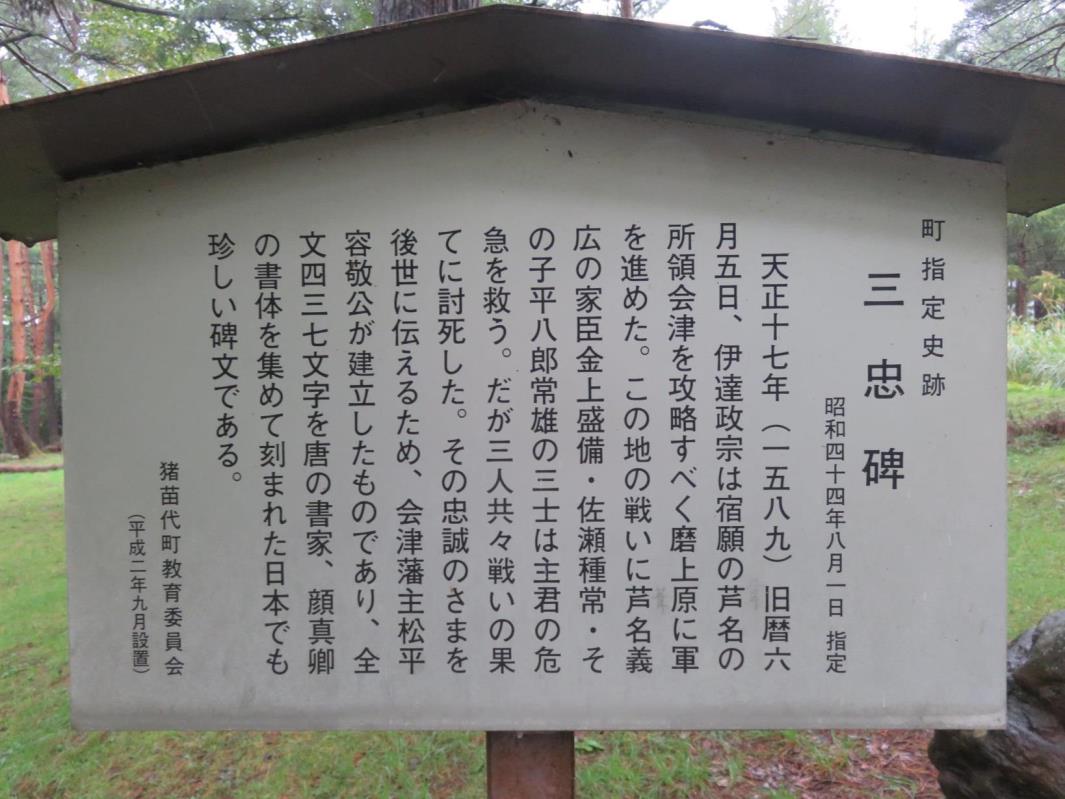 町指定史跡
三忠碑
昭和四十四年八月一日 指定
天正十七年（一五八九）旧暦六
月五日、伊達政宗は宿願の芦名の
所領会津を攻略すべく磨上原に軍
を進めた。この地の戦いに芦名義
広の家臣金上盛備・佐瀬種常・そ
の子平八郎常雄の三士は主君の危
急を救う。だが三人共々戦いの果
てに討死した。その忠誠のさまを
後世に伝えるため、会津藩主松平
容敬公が建立したものであり、全
文四三七文字を唐の書家、顔真卿
の書体を集めて刻まれた日本でも
珍しい碑文である。
猪苗代町教育委員会
（平成二年九月設置）